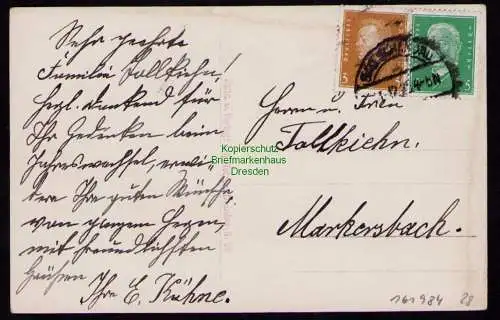 Sehr geehrte
Familie Tollkiehn!
Herzl. dankend für
Ihr Gedenken beim
Jahreswechsel, erwi-
dere Ihre guten Wünsche
von ganzem Herzen,
mit freundlichsten
Grüßen
Ihre E. Kühne.
3
5
Kopierschutz
Briefmarkenhaus
Dresden
Herrn u. Frau
Tollkiehn.
Markersbach.
161984 28